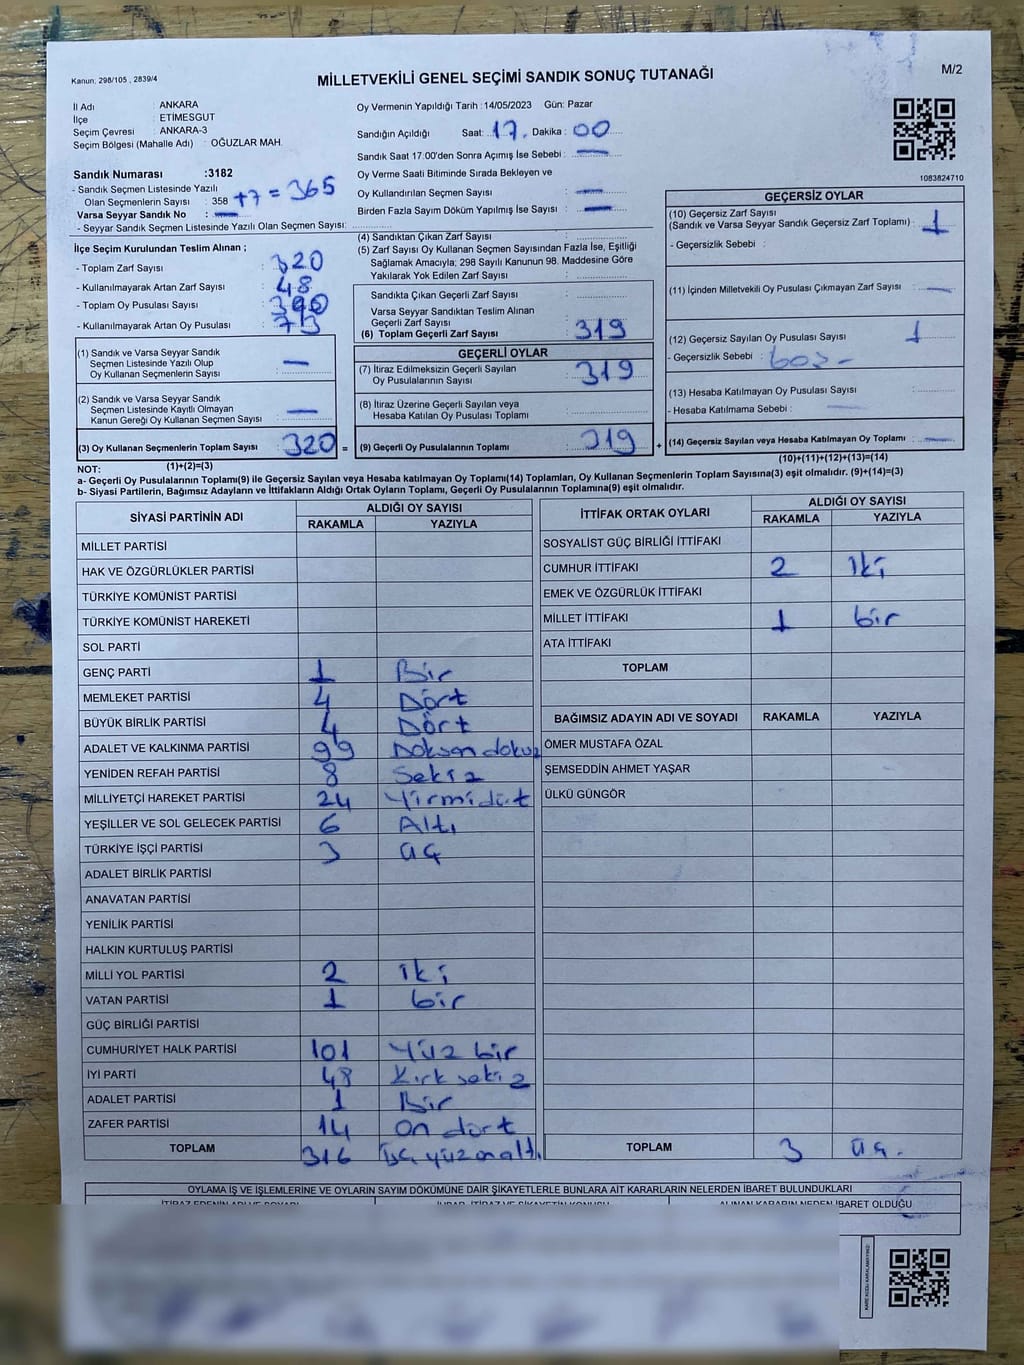 Kanun: 298/105 , 2839/4
MİLLETVEKİLİ GENEL SEÇİMİ SANDIK SONUÇ TUTANAĞI
M/2
İl Adı ANKARA
İlçe ETİMESGUT
Seçim Çevresi : ANKARA-3
Seçim Bölgesi (Mahalle Adı) : OĞUZLAR MAH.
Sandık Numarası :3182
- Sandık Seçmen Listesinde Yazılı
Olan Seçmenlerin Sayısı : 358 +7 = 365
Varsa Seyyar Sandık No : —
- Seyyar Sandık Seçmen Listesinde Yazılı Olan Seçmen Sayısı:
Oy Vermenin Yapıldığı Tarih :14/05/2023 Gün: Pazar
Sandığın Açıldığı Saat: 17. Dakika: 00
Sandık Saat 17:00'den Sonra Açımış İse Sebebi : —
Oy Verme Saati Bitiminde Sırada Bekleyen ve
Oy Kullandırılan Seçmen Sayısı : —
Birden Fazla Sayım Döküm Yapılmış İse Sayısı : —
1083824710
İlçe Seçim Kurulundan Teslim Alınan ;
- Toplam Zarf Sayısı : 320
- Kullanılmayarak Artan Zarf Sayısı : 48
- Toplam Oy Pusulası Sayısı : 390
- Kullanılmayarak Artan Oy Pusulası : 73
(1) Sandık ve Varsa Seyyar Sandık
Seçmen Listesinde Yazılı Olup
Oy Kullanan Seçmenlerin Sayısı : —
(2) Sandık ve Varsa Seyyar Sandık
Seçmen Listesinde Kayıtlı Olmayan
Kanun Gereği Oy Kullanan Seçmen Sayısı : —
(3) Oy Kullanan Seçmenlerin Toplam Sayısı : 320 =
(1)+(2)=(3)
(4) Sandıktan Çıkan Zarf Sayısı :
(5) Zarf Sayısı Oy Kullanan Seçmen Sayısından Fazla İse, Eşitliği
Sağlamak Amacıyla; 298 Sayılı Kanunun 98. Maddesine Göre
Yakılarak Yok Edilen Zarf Sayısı :
Sandıkta Çıkan Geçerli Zarf Sayısı :
Varsa Seyyar Sandıktan Teslim Alınan
Geçerli Zarf Sayısı :
(6) Toplam Geçerli Zarf Sayısı : 319
GEÇERLİ OYLAR
(7) İtiraz Edilmeksizin Geçerli Sayılan
Oy Pusulalarının Sayısı : 319
(8) İtiraz Üzerine Geçerli Sayılan veya
Hesaba Katılan Oy Pusulaları Toplamı :
(9) Geçerli Oy Pusulalarının Toplamı : 319 +
GEÇERSİZ OYLAR
(10) Geçersiz Zarf Sayısı
(Sandık ve Varsa Seyyar Sandık Geçersiz Zarf Toplamı) : 1
- Geçersizlik Sebebi :
(11) İçinden Milletvekili Oy Pusulası Çıkmayan Zarf Sayısı : —
(12) Geçersiz Sayılan Oy Pusulası Sayısı : 1
- Geçersizlik Sebebi :
(13) Hesaba Katılmayan Oy Pusulası Sayısı :
- Hesaba Katılmama Sebebi : —
(14) Geçersiz Sayılan veya Hesaba Katılmayan Oy Toplamı : —
(10)+(11)+(12)+(13)=(14)
NOT:
a- Geçerli Oy Pusulalarının Toplamı(9) ile Geçersiz Sayılan veya Hesaba Katılmayan Oy Toplamı(14) Toplamları, Oy Kullanan Seçmenlerin Toplam Sayısına(3) eşit olmalıdır. (9)+(14)=(3)
b- Siyasi Partilerin, Bağımsız Adayların ve İttifakların Aldığı Ortak Oyların Toplamı, Geçerli Oy Pusulalarının Toplamına(9) eşit olmalıdır.
SİYASİ PARTİNİN ADI ALDIĞI OY SAYISI
RAKAMLA YAZIYLA
MİLLET PARTİSİ
HAK VE ÖZGÜRLÜKLER PARTİSİ
TÜRKİYE KOMÜNİST PARTİSİ
TÜRKİYE KOMÜNİST HAREKETİ
SOL PARTİ
GENÇ PARTİ 1 Bir
MEMLEKET PARTİSİ 4 Dört
BÜYÜK BİRLİK PARTİSİ 4 Dört
ADALET VE KALKINMA PARTİSİ 99 Doksan dokuz
YENİDEN REFAH PARTİSİ 8 Sekiz
MİLLİYETÇİ HAREKET PARTİSİ 24 Yirmidört
YEŞİLLER VE SOL GELECEK PARTİSİ 6 Altı
TÜRKİYE İŞÇİ PARTİSİ 3 üç
ADALET BİRLİK PARTİSİ
ANAVATAN PARTİSİ
YENİLİK PARTİSİ
HALKIN KURTULUŞ PARTİSİ
MİLLİ YOL PARTİSİ 2 iki
VATAN PARTİSİ 1 bir
GÜÇ BİRLİĞİ PARTİSİ
CUMHURİYET HALK PARTİSİ 101 Yüz bir
İYİ PARTİ 48 Kırk sekiz
ADALET PARTİSİ 1 Bir
ZAFER PARTİSİ 14 on dört
TOPLAM 316 üçyüzonaltı
İTTİFAK ORTAK OYLARI ALDIĞI OY SAYISI
RAKAMLA YAZIYLA
SOSYALİST GÜÇ BİRLİĞİ İTTİFAKI
CUMHUR İTTİFAKI 2 iki
EMEK VE ÖZGÜRLÜK İTTİFAKI
MİLLET İTTİFAKI 1 bir
ATA İTTİFAKI
TOPLAM
BAĞIMSIZ ADAYIN ADI VE SOYADI RAKAMLA YAZIYLA
ÖMER MUSTAFA ÖZAL
ŞEMSEDDİN AHMET YAŞAR
ÜLKÜ GÜNGÖR
TOPLAM 3 üç.
OYLAMA İŞ VE İŞLEMLERİNE VE OYLARIN SAYIM DÖKÜMÜNE DAİR ŞİKAYETLERLE BUNLARA AİT KARARLARIN NELERDEN İBARET BULUNDUKLARI
İTİRAZ EDENİN ADI VE SOYADI İHBAR, İTİRAZ VE ŞİKAYETİN KONUSU ALINAN KARARIN NEDEN İBARET OLDUĞU